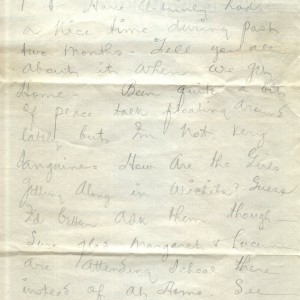 I & Have had
a nice time during past
two months - Tell you all
about it when we get
Home - Been quite a bit
of peace talk floating around
lately but I'm not very
sanguine - How are the Girls
getting along in Wichita? Guess
I'd better ask them though -
Sure glad Margaret &
are attending School there
instead of at Home. See